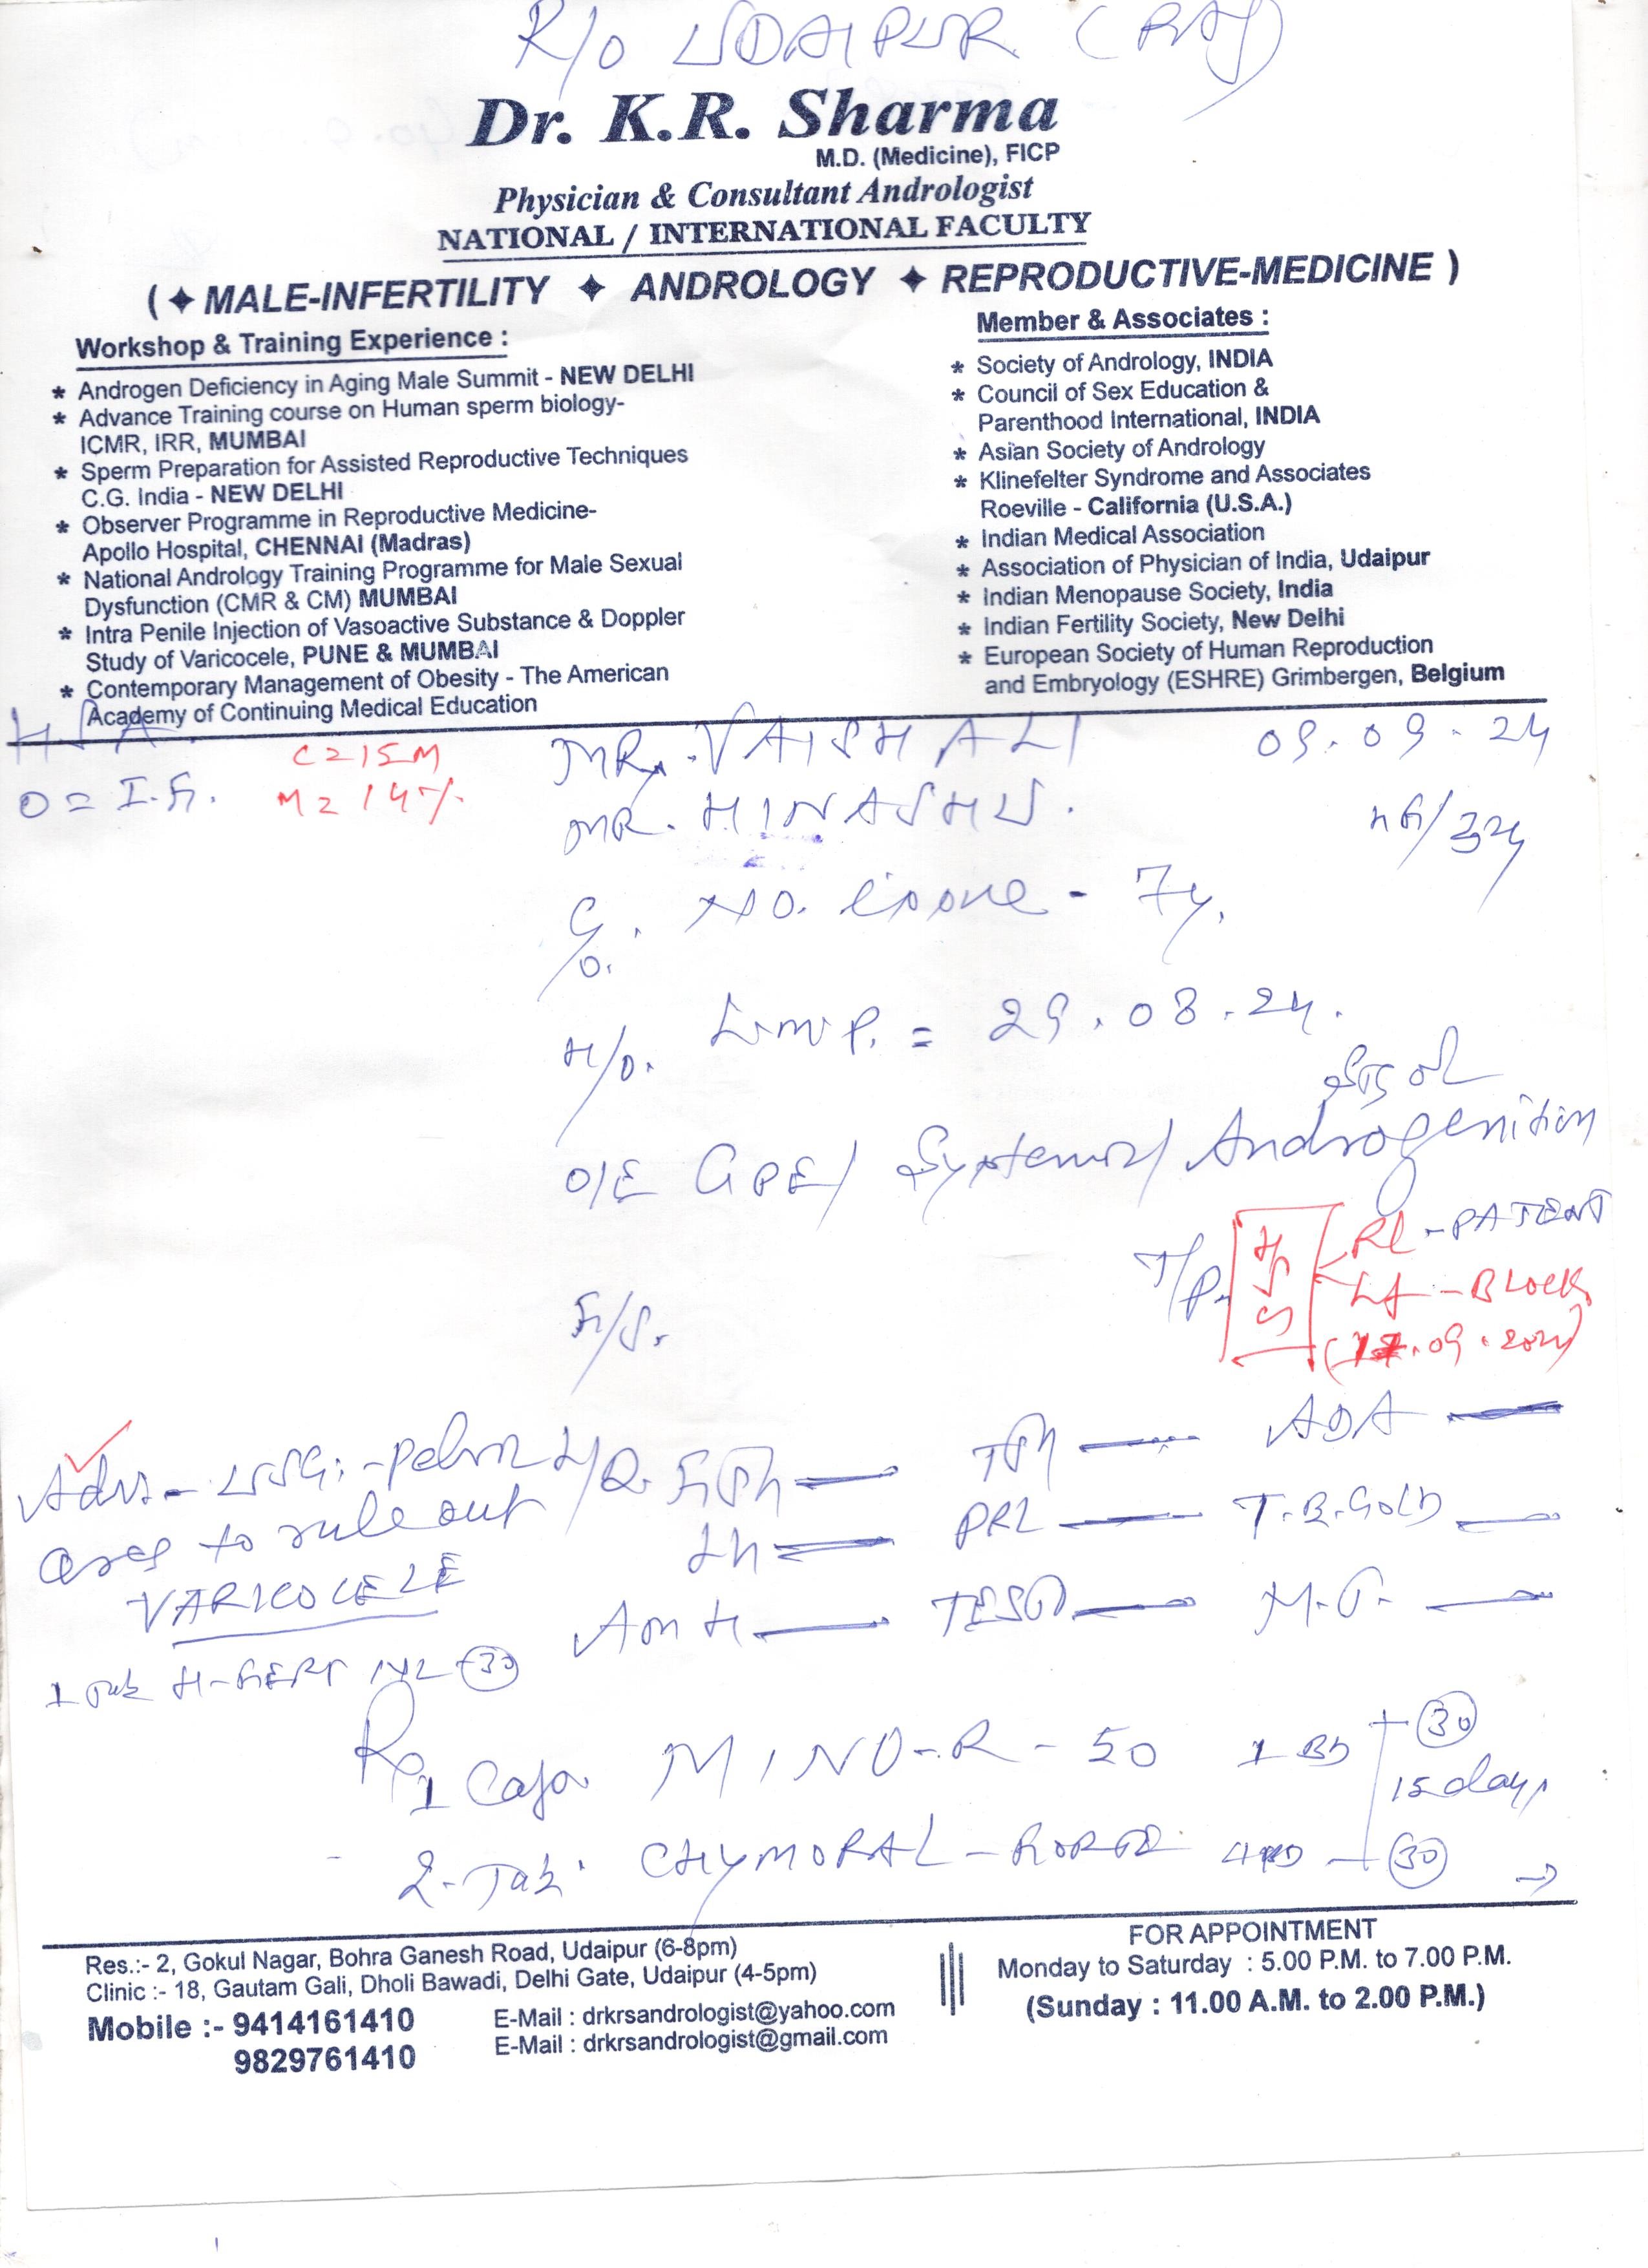 R/O UDAIPUR (RAJ)
Dr. K.R. Sharma
M.D. (Medicine), FICP
Physician & Consultant Andrologist
NATIONAL / INTERNATIONAL FACULTY
( ✦ MALE-INFERTILITY ✦ ANDROLOGY ✦ REPRODUCTIVE-MEDICINE )
Workshop & Training Experience :
* Androgen Deficiency in Aging Male Summit - NEW DELHI
* Advance Training course on Human sperm biology-
ICMR, IRR, MUMBAI
* Sperm Preparation for Assisted Reproductive Techniques
C.G. India - NEW DELHI
* Observer Programme in Reproductive Medicine-
Apollo Hospital, CHENNAI (Madras)
* National Andrology Training Programme for Male Sexual
Dysfunction (CMR & CM) MUMBAI
* Intra Penile Injection of Vasoactive Substance & Doppler
Study of Varicocele, PUNE & MUMBAI
* Contemporary Management of Obesity - The American
Academy of Continuing Medical Education
Member & Associates :
* Society of Andrology, INDIA
* Council of Sex Education &
Parenthood International, INDIA
* Asian Society of Andrology
* Klinefelter Syndrome and Associates
Roeville - California (U.S.A.)
* Indian Medical Association
* Association of Physician of India, Udaipur
* Indian Menopause Society, India
* Indian Fertility Society, New Delhi
* European Society of Human Reproduction
and Embryology (ESHRE) Grimbergen, Belgium
H.S.A.
C = 15M
M = 14%
MR. VAISHALI 09.09.24
MR. HINASHU.
C/O. No. issue - 7y.
H/O. L.M.P. = 29.08.24.
O/E GPE/ Systemic/ Androgenition
T/P. HSG Rt - PATENT
Lt - BLOCK
F/S.
Adv. - USG. - Pelvis
area to rule out
VARICOCELE
FSH TSH ADA
LH PRL T.B. GOLD
AMH TESTO M.T.
1 Tab H-FERT 1x2 - 30
Rx
1 Cap. MINO-R-50 1 BD 30
15 days
2- Tab. CHYMORAL-FORTE 30 →
Res.:- 2, Gokul Nagar, Bohra Ganesh Road, Udaipur (6-8pm)
Clinic :- 18, Gautam Gali, Dholi Bawadi, Delhi Gate, Udaipur (4-5pm)
Mobile :- 9414161410
9829761410
E-Mail : drkrsandrologist@yahoo.com
E-Mail : drkrsandrologist@gmail.com
FOR APPOINTMENT
Monday to Saturday : 5.00 P.M. to 7.00 P.M.
(Sunday : 11.00 A.M. to 2.00 P.M.)